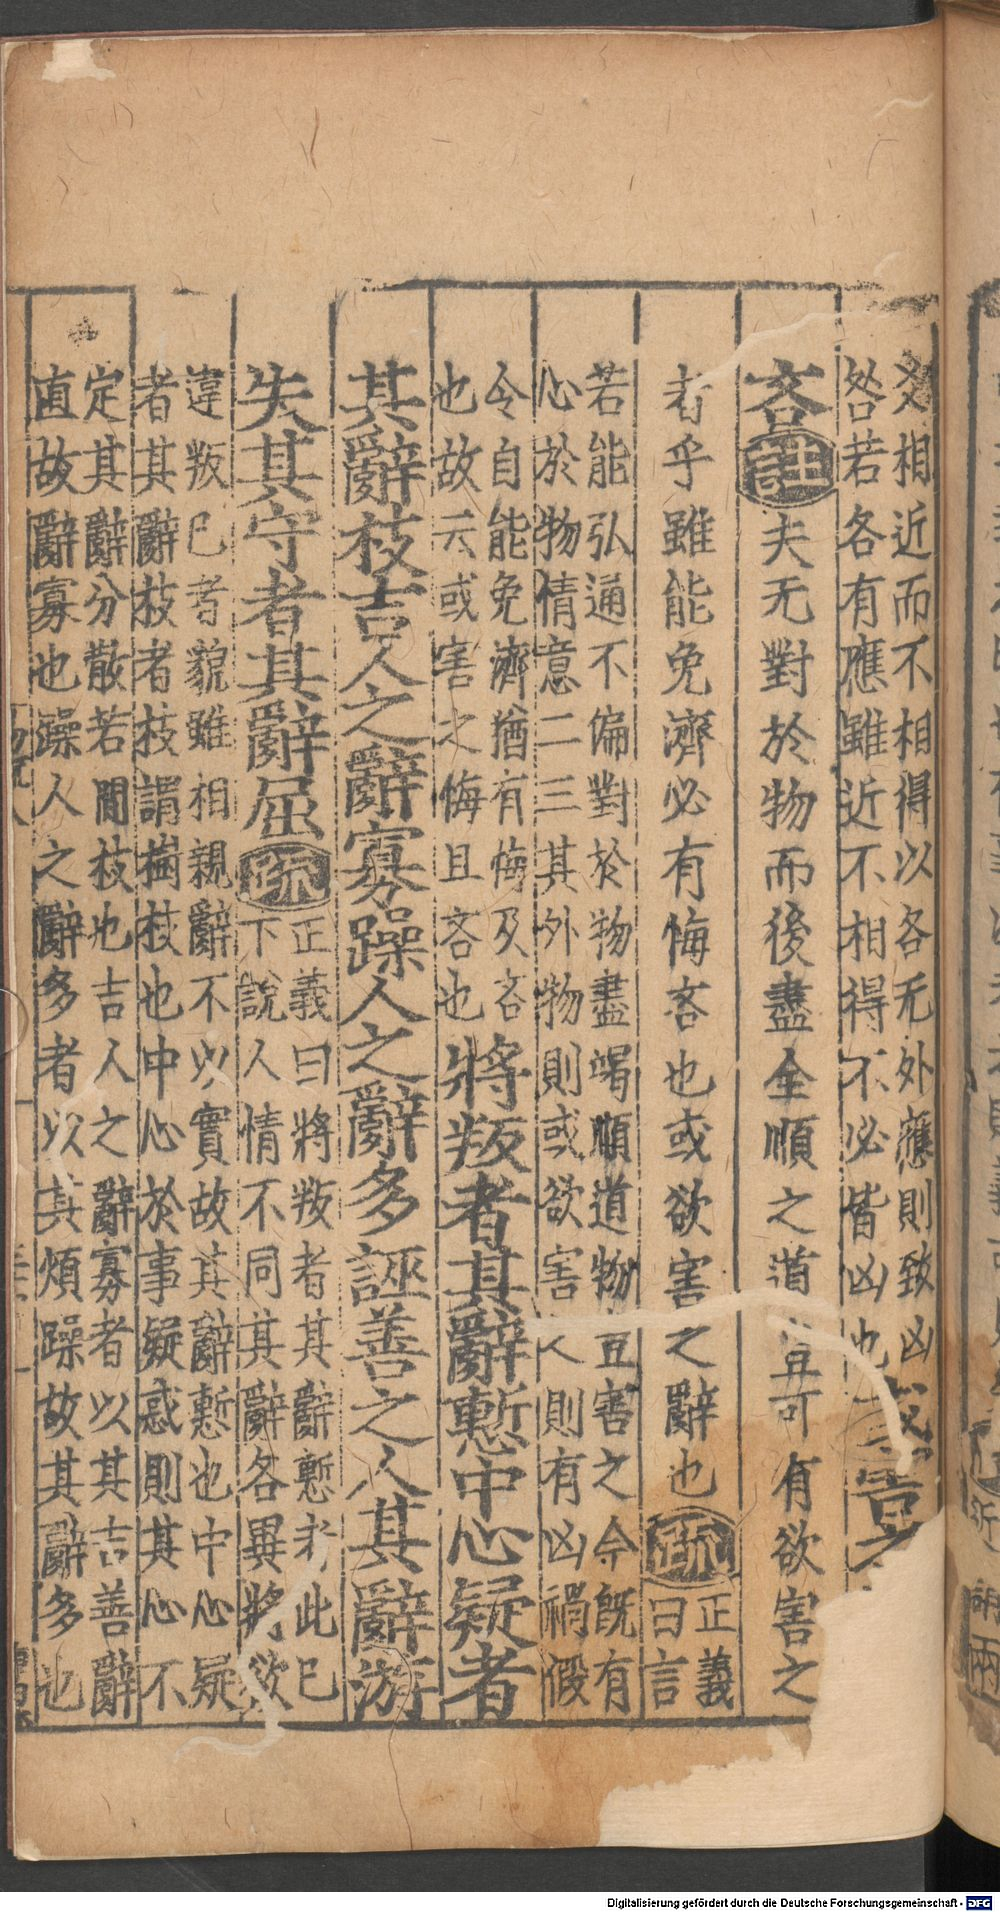 爻相近而不相得以各无外應則致凶
咎若各有應雖近不相得不必皆凶也
吝註夫无對於物而後盡全順之道豈可有欲害之
者乎雖能免濟必有悔吝也或欲害之辭也疏正義
曰言
若能弘通不偏對於物盡竭順道物豈害之今旣有
心於物情意二三其外物則或欲害人則有凶禍假
令自能免濟猶有悔及吝
也故云或害之悔且吝也將叛者其辭慙中心疑者
其辭枝吉人之辭寡躁人之辭多誣善之人其辭游
失其守者其辭屈疏正義曰將叛者其辭慙者此已
下說人情不同其辭各異將欲
違叛已者貌雖相親辭不以實故其辭慙也中心疑
者其辭枝者枝謂樹枝也中心於事疑惑則其心不
定其辭分散若閒枝也吉人之辭寡者以其吉善辭
直故辭寡也躁人之辭多者以其煩躁故其辭多也
Digitalisierung gefördert durch die Deutsche Forschungsgemeinschaft - DFG